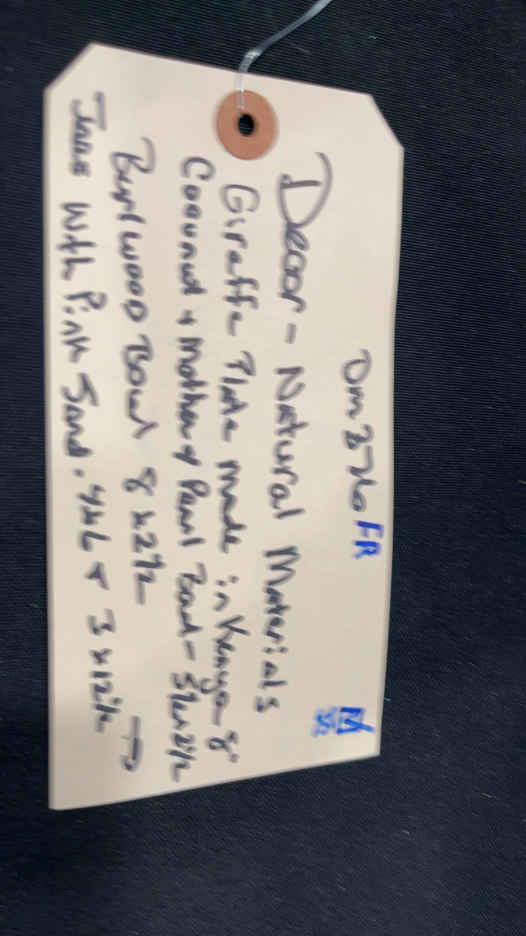 Dm 276 FR
Decor - Natural Materials
Giraffe Plate made in Kenya 8"
Coconut + Mother of Pearl Bowl -
Burlwood Bowl 8x2½ →
With Pink Sand. 4x6 + 3x12½